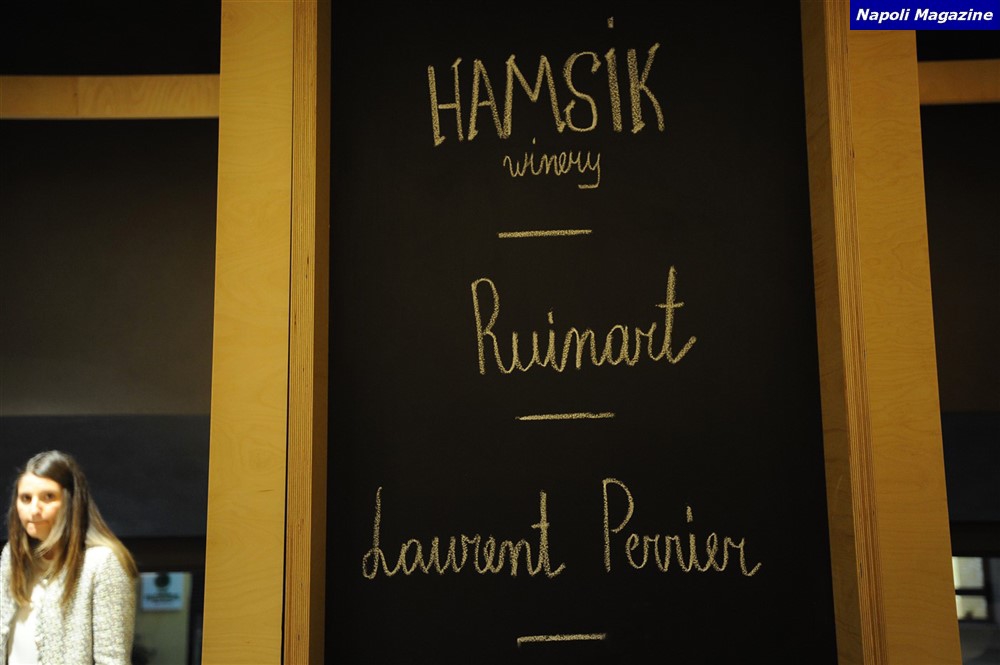 Napoli Magazine
HAMSiK
winery
Ruinart
Laurent Perrier